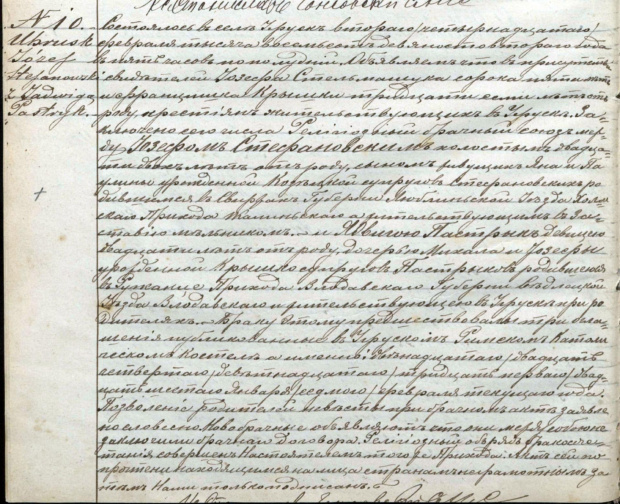 № 10.
Uhrusk
Józef
Stefanowski
z Jadwigą
Pastryk.
Состоялось въ селѣ Урускъ втораго /четырнадцатаго/
Февраля тысяча восемьсотъ девяносто втораго года
въ пять часовъ по полудни. Объявляемъ что въ присутствіи
свидѣтелей Іозефа Стельмащука сорока пяти лѣтъ
и Францишка Крышки тридцати семи лѣтъ отъ
роду, крестіянъ жительствующихъ въ Урускъ за-
ключено сего числа Религіозный брачный союзъ меж-
ду Іозефомъ Стефановскимъ холостымъ двадца-
ти двухъ лѣтъ отъ роду, сыномъ живущихъ Яна и Па-
улины урожденной супруговъ Стефановскихъ ро-
дившимся въ Губерніи Люблинской Уѣзда
Прихода жительствующимъ въ
мѣльникомъ и Ядвигою Пастрыкъ девицею
двадцати лѣтъ отъ роду, дочерью Михала и Іозефы
урожденной Крышко супруговъ Пастрыковъ родившеюся
въ Ружанке Прихода Влодавскаго Губерніи Сѣдлецкой
Уѣзда Влодавскаго и жительствующею въ Урускъ при ро-
дителяхъ. Браку этому предшествовали три оглаше-
шенія публикованные въ Урускомъ Римско Католи-
ческомъ Костелѣ а именно: двѣнадцатаго /двадцать
четвертаго/, девятнадцатаго /тридцать перваго/ двад-
цать шестаго Января /седмого/ Февраля текущаго года.
Позволеніе родителей невѣсты при брачномъ актѣ заявле-
но словесно. Новобрачные объявляютъ что они между собою не
заключили брачнаго договора. Религіозный обрядъ бракосоче-
танія совершенъ Настоятелемъ того же Прихода. Актъ сей по
прочтеніи находящимся на лицо странамъ неграмотнымъ за
тѣмъ Нами только подписанъ.